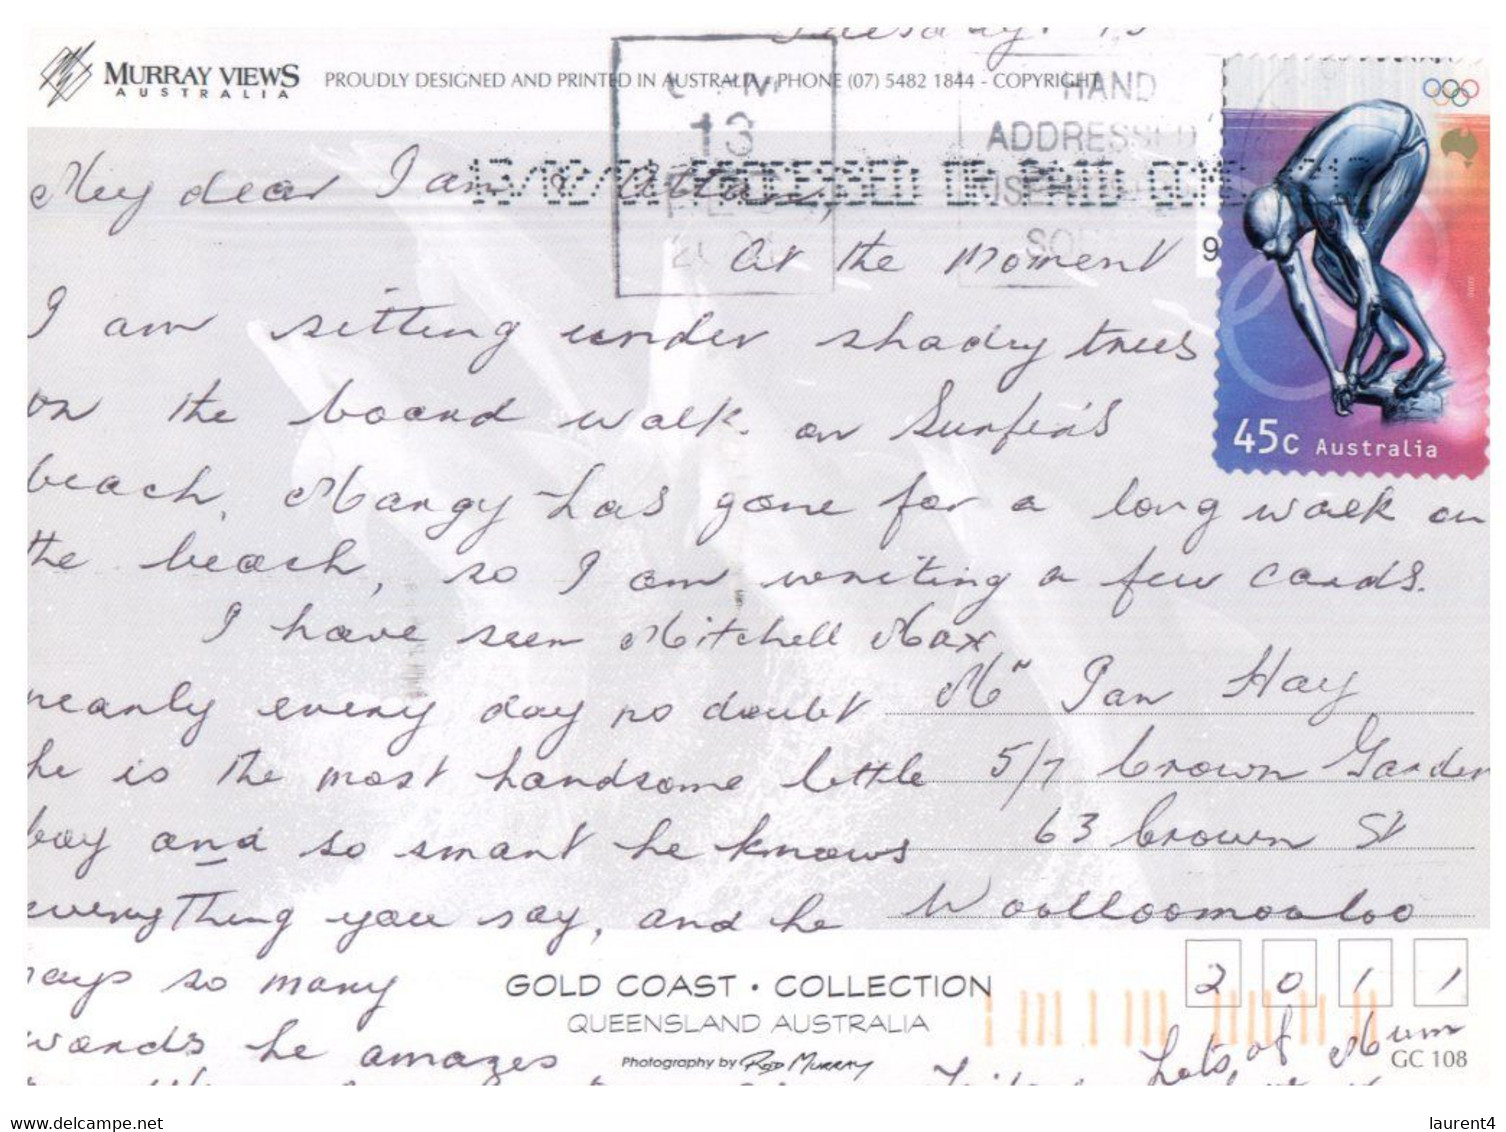 Tuesday. 13
MURRAY VIEWS
AUSTRALIA
PROUDLY DESIGNED AND PRINTED IN AUSTRALIA - PHONE (07) 5482 1844 - COPYRIGHT
13
HAND
ADDRESSED
PROCESSED ON
My dear I am &
At the moment
9
I am sitting under shady trees
on the board walk. on Surfer's
beach, Margy has gone for a long walk on
the beach, so I am writing a few cards.
I have seen Mitchell Max
nearly every day no doubt
he is the most handsome little
boy and so smart he knows
everything you say, and he
says so many
words he amazes
Mr Ian Hay
5/7 brown Garden
63 brown St
Woolloomooloo
2011
Lots of Mum
45c Australia
GOLD COAST • COLLECTION
QUEENSLAND AUSTRALIA
Photography by ROD MURRAY
GC 108
www.delcampe.net
laurent4